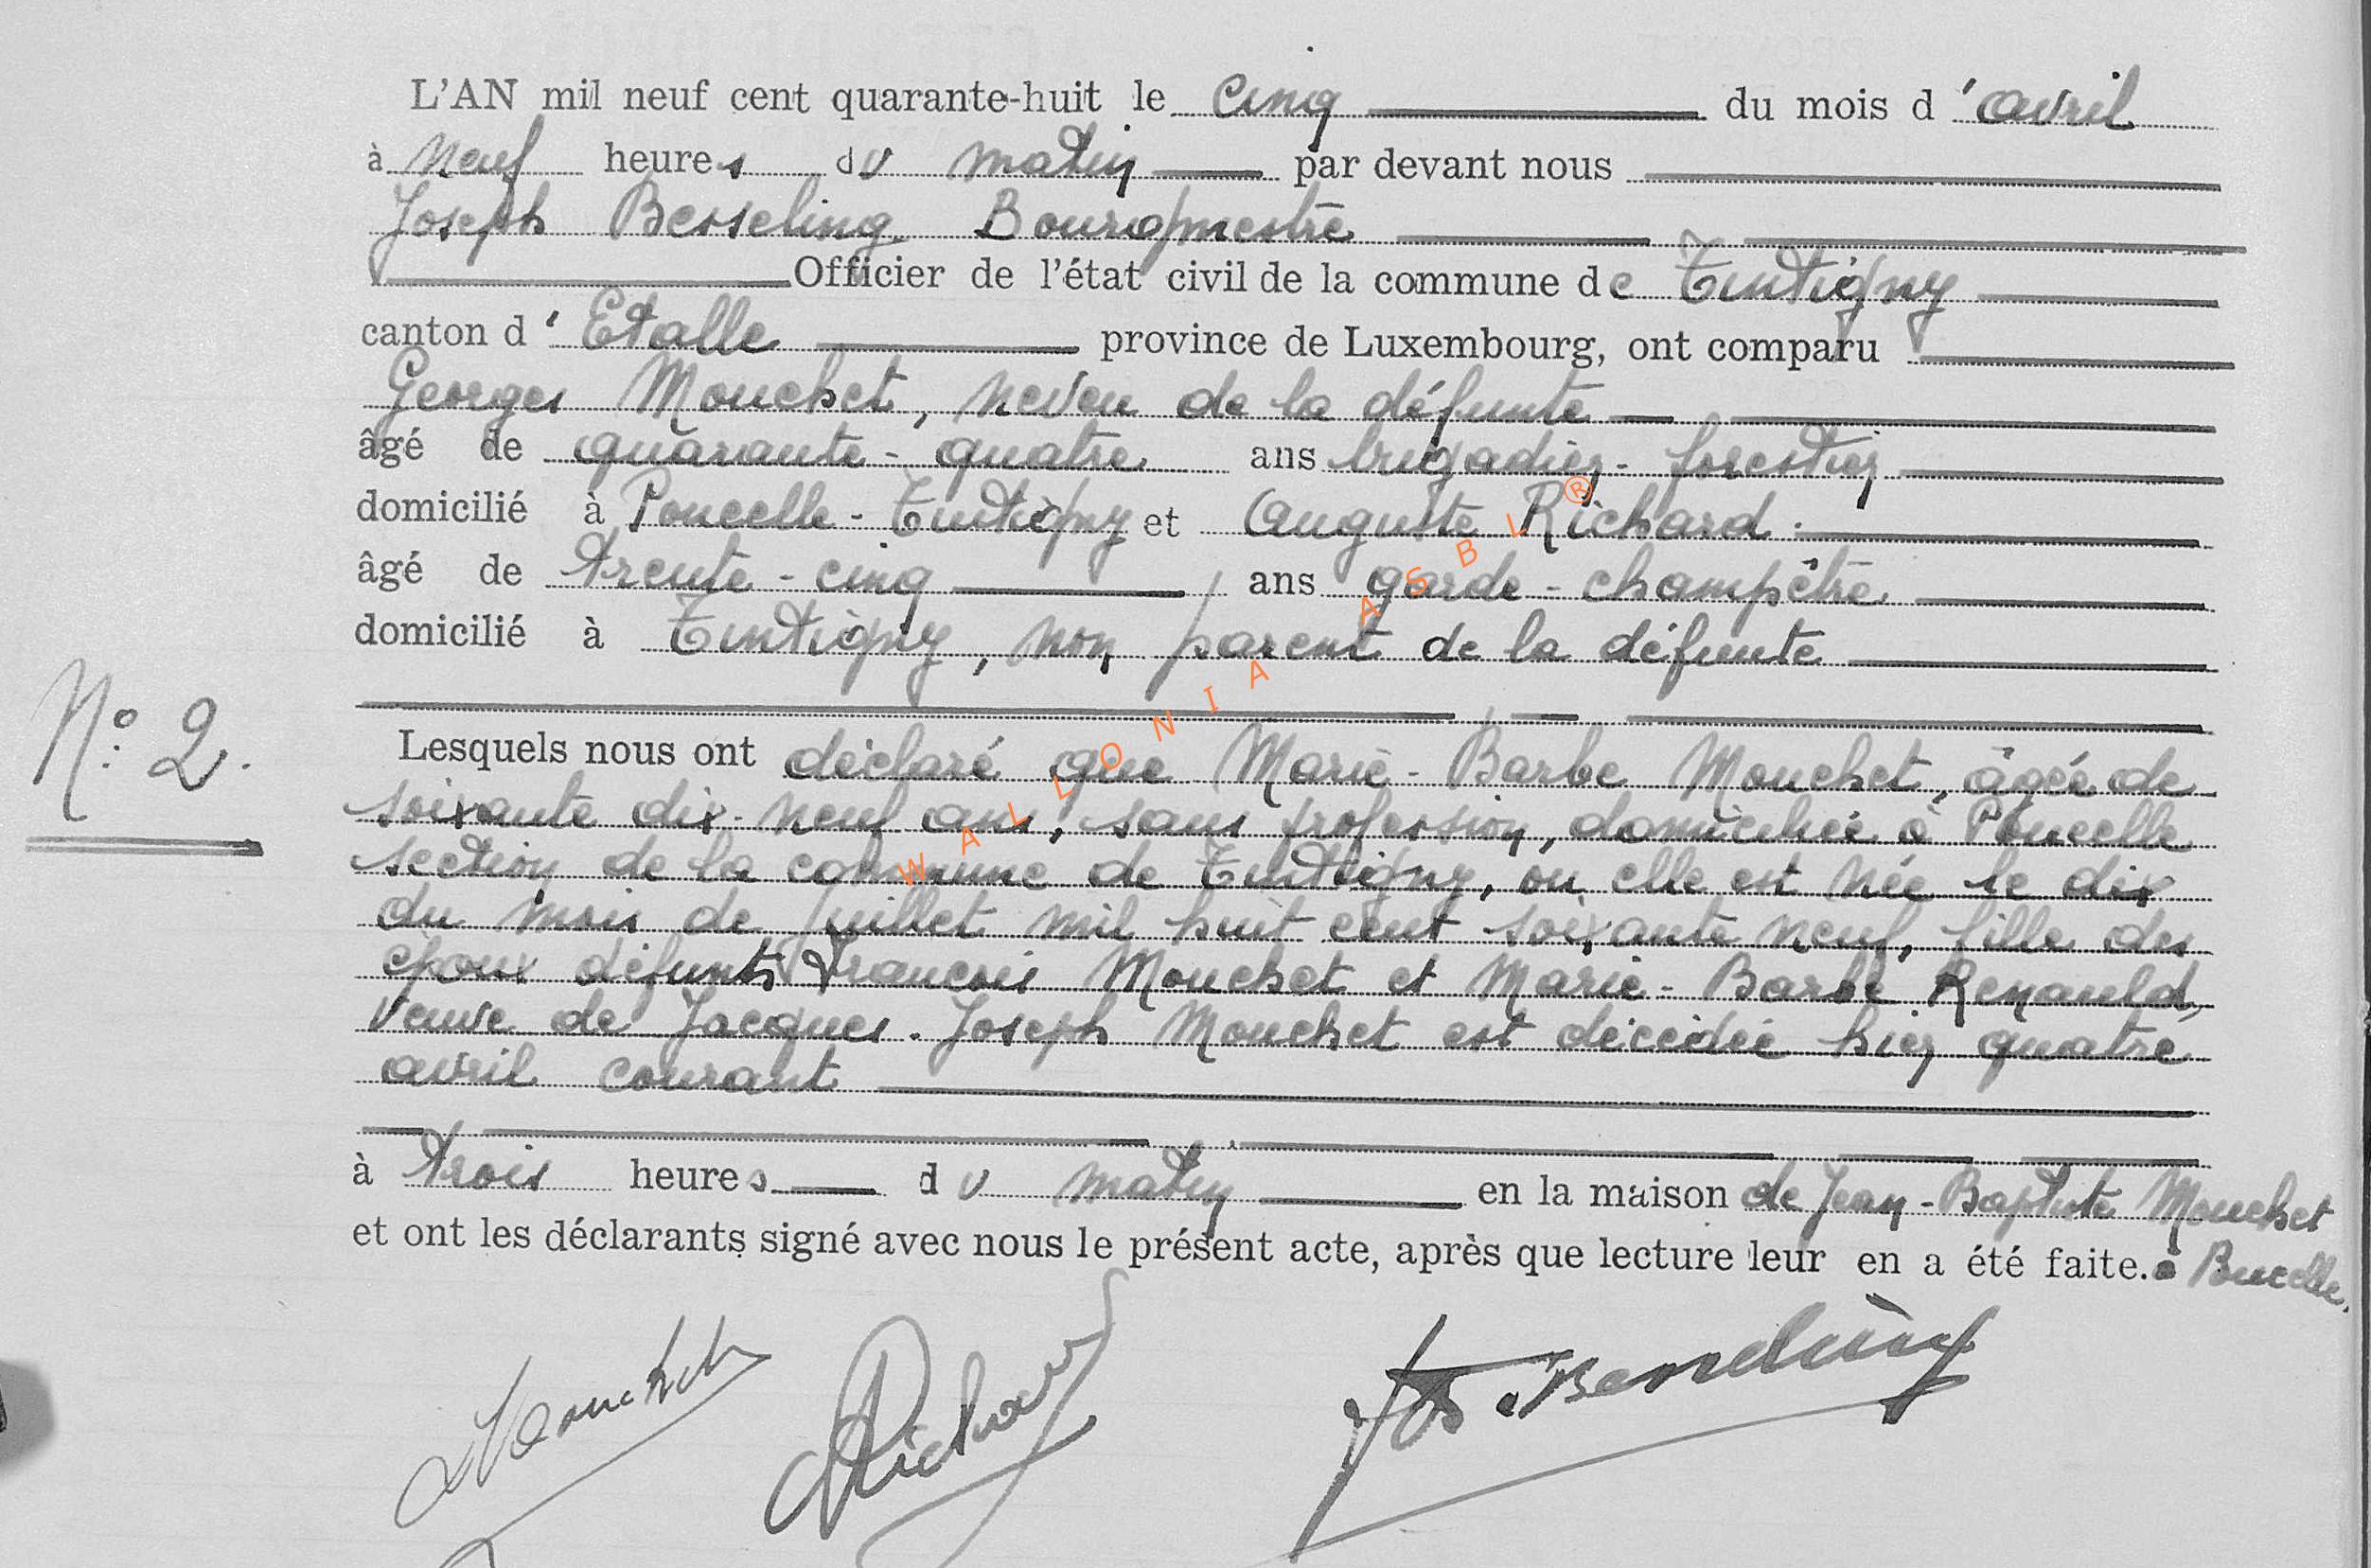 L'AN mil neuf cent quarante-huit le cinq du mois d'avril
à neuf heures du matin par devant nous
Joseph Besseling Bourgmestre
Officier de l'état civil de la commune de Tintigny
canton d'Etalle province de Luxembourg, ont comparu
Georges Mouchet, neveu de la défunte
âgé de quarante-quatre ans brigadier-forestier
domicilié à Poncelle-Tintigny et Auguste Richard
âgé de trente-cinq ans garde-champêtre
domicilié à Tintigny, non parent de la défunte
N° 2.
Lesquels nous ont déclaré que Marie-Barbe Mouchet, âgée de
soixante dix-neuf ans, sans profession, domiciliée à Poncelle
section de la commune de Tintigny, ou elle est née le dix
du mois de juillet mil huit cent soixante neuf, fille des
époux défunts François Mouchet et Marie-Barbe Renauld,
veuve de Jacques-Joseph Mouchet est décédée hier quatre
avril courant
à trois heures du matin en la maison de Jean-Baptiste Mouchet
et ont les déclarants signé avec nous le présent acte, après que lecture leur en a été faite. à Poncelle.
Mouchet Richard
WALLONIA ASBL ®